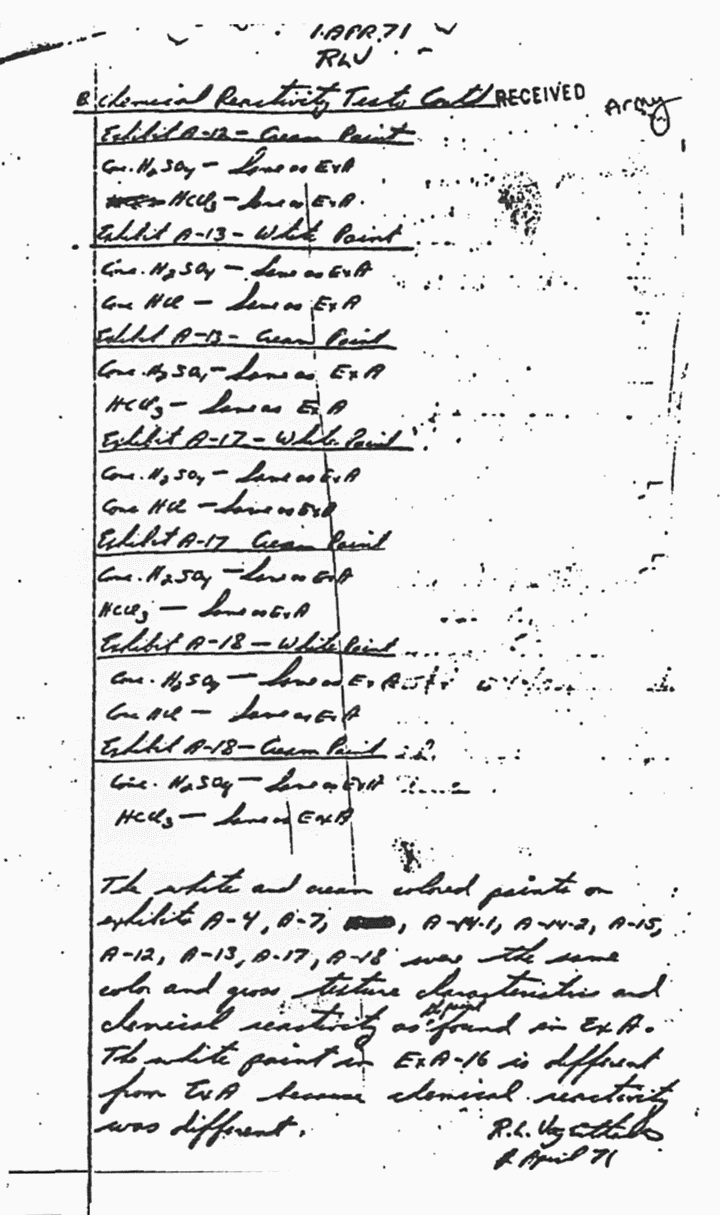 1 APR 71
RLV
B. Chemical Reactivity Tests Cont'd RECEIVED
Exhibit A-12 - Cream Paint
Conc. H2SO4 - Same as Ex A
HCCl3 - Same as Ex A.
Exhibit A-13 - White Paint
Conc. H2SO4 - Same as Ex A
Conc HCl - Same as Ex A
Exhibit A-13 - Cream Paint
Conc. H2SO4 - Same as Ex A
HCCl3 - Same as Ex A
Exhibit A-17 - White Paint
Conc. H2SO4 - Same as Ex A
Conc HCl - Same as Ex A
Exhibit A-17 Cream Paint
Conc. H2SO4 - Same as Ex A
HCCl3 - Same as Ex A
Exhibit A-18 - White Paint
Conc. H2SO4 - Same as Ex A
Conc HCl - Same as Ex A
Exhibit A-18 - Cream Paint
Conc. H2SO4 - Same as Ex A
HCCl3 - Same as Ex A
The white and cream colored paints on
exhibits A-4, A-7, , A-14-1, A-14-2, A-15,
A-12, A-13, A-17, A-18 were the same
color and gross texture characteristics and
chemical reactivity as found in Ex A.
The white paint in Ex A-16 is different
from Ex A because chemical reactivity
was different.
R.L.
April 71